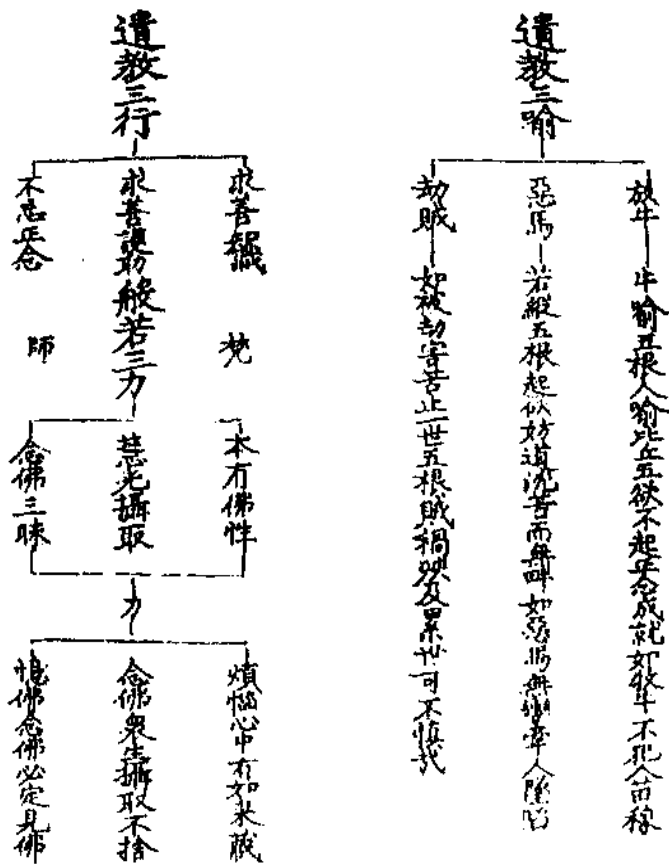 遺教三喻
放牛
牛喻五根人喻比丘五欲不起正念成就如牧牛不犯人苗稼
惡馬
若縱五根起欲妨道沈苦而無畔如惡馬無轡牽人墜陷
劫賊
如被劫害苦止一世五根賊禍殃及累世可不慎哉
遺教三行
求善知識
求善護助
不忘正念
般若三力
梵
師
本有佛性
慧光攝取
念佛三昧
力
煩惱心中有如來藏
念佛衆生攝取不捨
憶佛念佛必定見佛